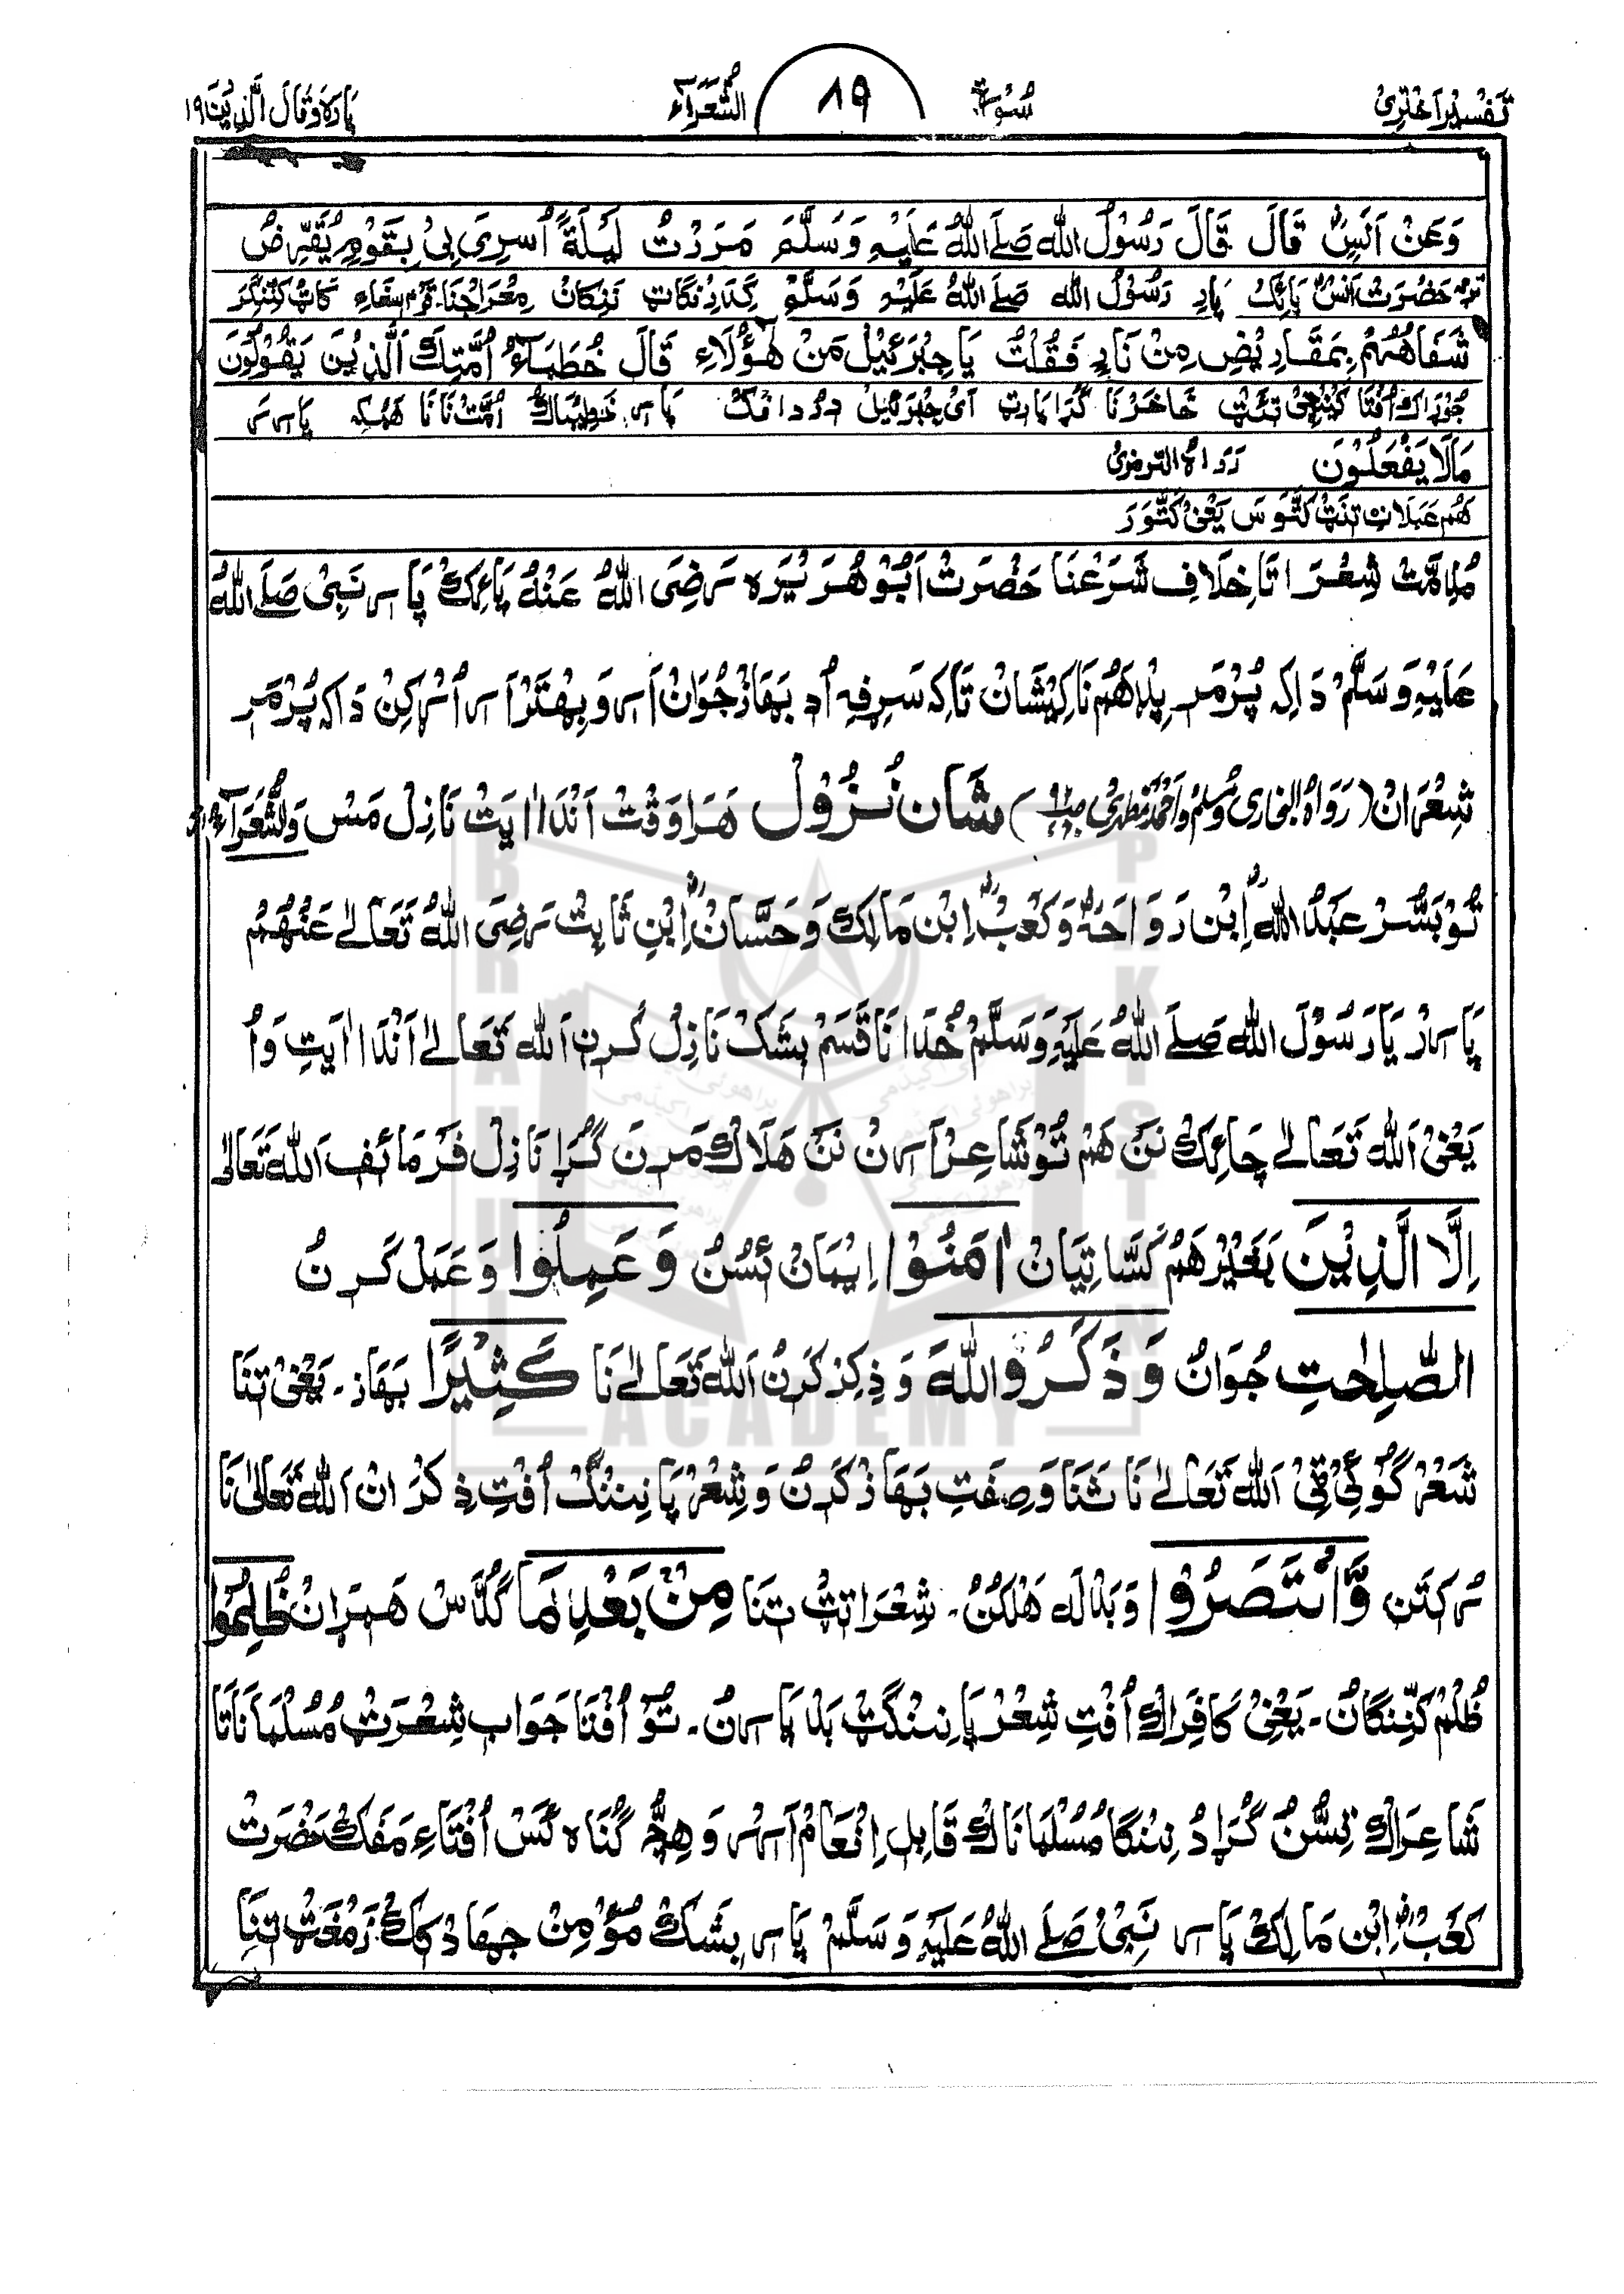 تَفْسِیْرِ اَخْتَرِیْ سُوْرَة ١٩ الشُّعَرَآءُ پَارَہ وَقَالَ الَّذِیْنَ ١٩
وَعَنْ اَنَسٍؓ قَالَ قَالَ رَسُوْلُ اللّٰہ صَلَےاللّٰہُ عَلَیْہِ وَسَلَّمَ مَرَرْتُ لَیْلَةً اُسْرِیَ بِیْ بِقَوْمٍ تُقْرَضُ
حَضْرَتْ اَنَسؓ پَائِکْ پَارِ رَسُوْلُ اللّٰہ صَلَےاللّٰہُ عَلَیْہِ وَسَلَّمْ گِدَرِنْگَاٹ نَنِکَانْ مِعْرَاجْنَا
شَفَاھُھُمْ بِمَقَارِیْضِ مِنْ نَارٍ فَقُلْتُ یَا جِبْرَئِیْلُ مَنْ ھٰؤُلَاءِ قَالَ خُطَبَآءُ اُمَّتِكَ الَّذِیْنَ یَقُوْلُوْنَ
خَاخَرْنَا گُڑَا پَارِٹ اَیْ جِبْرَئِیْل دَرْ دَا فَکْ پَارِ خَطِیْبَاکْ اُمَّتْ نَانَا ھَمْکِہ پَارَرَ
مَالَا یَفْعَلُوْنَ رَوَاہُ التِّرْمِذِیْ
ھَمْ عَمَلَاتِ تِنَٹْ کَتَّوَسَ یَعْنِیْ کَتَّوَرَ
مُلَامَّتْ شِعْرَاتَا خِلَافِ شَرَعْنَا حَضْرَتْ اَبُوْھُرَیْرَہ رَضِیَ اللّٰہُ عَنْہُ پَائِکْ پَارِ نَبِیْ صَلَےاللّٰہُ
عَلَیْہِ وَسَلَّمْ دَاکِہ پُرْمَرِ پِلَاھُمْ نَا کِیْشَانْ تَاکِہ سَرِفِہ اُدِ بَھَازْ جُوَانْ اَرِ وَبِھْتَرْ اَرِ اُرْکِنْ دَاکِہ پُرْمَرِ
شِعْرَانْ (رَوَاہُ البخاری وَمُسْلِمْ وَاَحْمَدْ مَظْہَرِیْ) شَانِ نُزُوْل ھَرَا وَقْتْ اَنْدَا اٰیَتْ نَازِلْ مَسْ وَالشُّعَرَآءُ
تُوْ بَسُّرْ عَبْدُ اللّٰہؓ اِبْنِ رَوَاحَہ وَکَعْبْؓ اِبْن مَالِكْ وَحَسَّانْؓ اِبْنِ ثَابِتْ رَضِیَ اللّٰہُ تَعَالےٰ عَنْھُمْ
پَارَرْ یَا رَسُوْلَ اللّٰہ صَلَےاللّٰہُ عَلَیْہِ وَسَلَّمْ خُدَانَا قَسَمْ بِشَکْ نَازِلْ کَرِنِ اَللّٰہ تَعَالےٰ اَنْدَا اٰیَتِ وَ اُ
یَعْنِیْ اَللّٰہ تَعَالےٰ چَائِکْ نَنْ ھَمْ تُوْ شَاعِرْ اَرِنْ نَنْ ھَلَاکْ مَرِنَ گُڑَا نَازِلْ فَرْمَائِفِ اَللّٰہ تَعَالٰی
اِلَّا الَّذِیْنَ بَغَیْر ھَمْ کَسَّاتِیَانْ اٰمَنُوْا اِیْمَانْ ہَسُنْ وَعَمِلُوا وَعَمَلْ کَرِنُ
الصّٰلِحٰتِ جُوَانُ وَذَکَرُوااللّٰہَ وَذِکِرْ کَرِنُ اَللّٰہ تَعَالےٰ نَا کَثِیْرًا بَھَاز۔ یَعْنِیْ تِنَا
شَعْرْ گُوْئِیْ ٹِیْ اَللّٰہ تَعَالےٰ نَا ثَنَا وَصِفَتِ بَھَازْ کَرِنُ وَشِعْرْ پَانِنْگْ اُفْتِ ذِکْرَانْ اَللّٰہ تَعَالٰی نَا
رَکَتَنِ وَّانْتَصَرُوْا وَبَدَلَہ ھَلْکُنُ۔ شِعْرَاتِٹْ تِنَا مِنْ بَعْدِ مَا گُڈَاسْ ھَمَرَانْ ظُلِمُوْا
ظُلْمْ کَنِّنْگَانُ۔ یَعْنِیْ کَافِرَاکْ اُفْتِ شِعْرْ پَانِنْگَٹْ بَدْ پَارِنُ۔ تُوْ اُفْتَا جَوَابِ شِعْرَتْ مُسُلْمَانَاتَا
شَاعِرَاکْ تِسُّنُ گُڑَا دُنِنْگَا مُسُلْمَانَاکْ قَابِلِ اِنْعَامْ اَرَرْ وَھِچُّ گُنَاہ کَسْ اُفْتَاءِ مَفَکْ حَضْرَتْ
کَعَبْؓ اِبْن مَالِكْ پَارِ نَبِیْ صَلَےاللّٰہُ عَلَیْہِ وَسَلَّمْ پَارِ بِشَکْ مُؤْمِنْ جِھَادْ کِکْ زَمْغَٹْ تِنَا
BRAHUI ACADEMY PAKISTAN